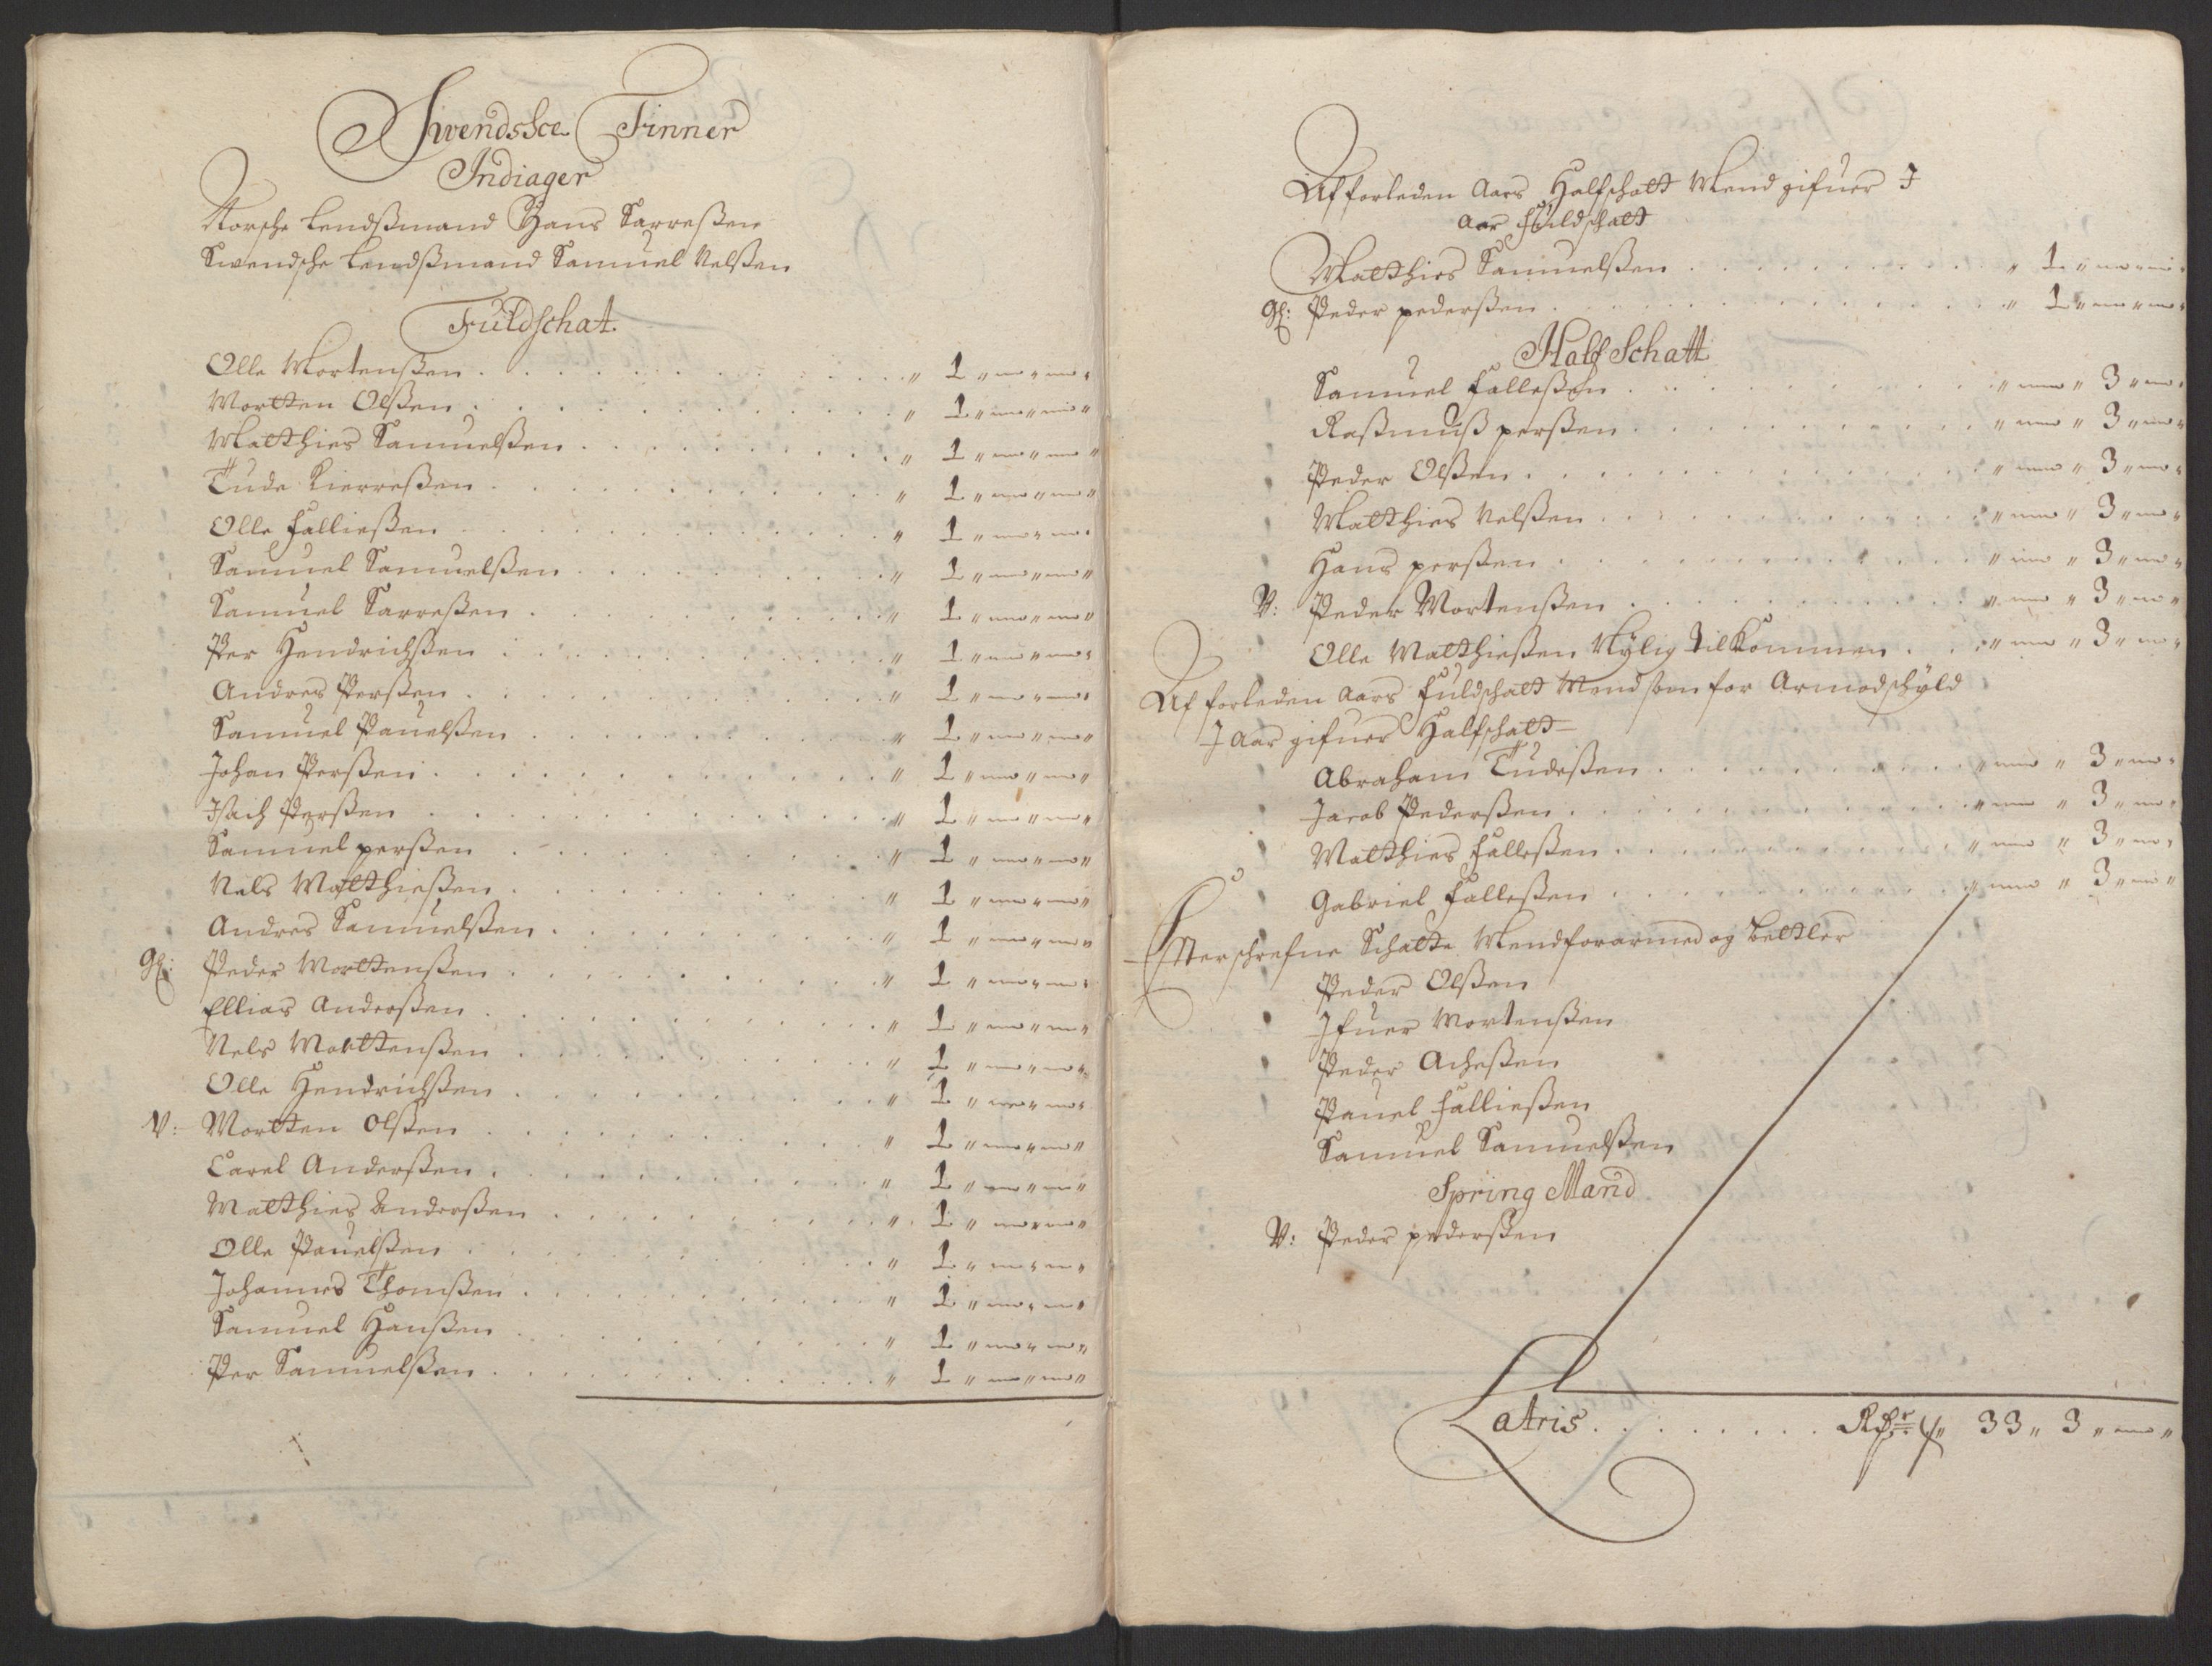 Swendsce Finner
Indiager
Norsche Lendßmand Hans Sarreßen
Swendsche Lendßmand Samuel Nelßen
Fuldschat.
Olle Mortenßen . . . " 1 " — " — "
Mortten Olßen . . . " 1 " — " — "
Matthies Samuelßen . . . " 1 " — " — "
Tude Kierreßen . . . " 1 " — " — "
Olle Falließen . . . " 1 " — " — "
Samuel Samuelßen . . . " 1 " — " — "
Samuel Sarreßen . . . " 1 " — " — "
Per Hendrichßen . . . " 1 " — " — "
Andres Perßen . . . " 1 " — " — "
Samuel Pauelßen . . . " 1 " — " — "
Johan Perßen . . . " 1 " — " — "
Isach Perßen . . . " 1 " — " — "
Samuel perßen . . . " 1 " — " — "
Nels Matthießen . . . " 1 " — " — "
Andres Samuelßen . . . " 1 " — " — "
Gl: Peder Morttenßen . . . " 1 " — " — "
Ellias Anderßen . . . " 1 " — " — "
Nels Morttenßen . . . " 1 " — " — "
Olle Hendrichßen . . . " 1 " — " — "
V: Mortten Olßen . . . " 1 " — " — "
Carel Anderßen . . . " 1 " — " — "
Matthies Anderßen . . . " 1 " — " — "
Olle Pauelßen . . . " 1 " — " — "
Johannes Thomßen . . . " 1 " — " — "
Samuel Hanßen . . . " 1 " — " — "
Per Samuelßen . . . " 1 " — " — "
Af forleden Aars Halfschatt Mend gifuer I
Aar Fuldschatt
Matthies Samuelßen . . . " 1 " — " — "
Gl: Peder pederßen . . . " 1 " — " — "
Half Schatt
Samuel Falleßen . . . " — " 3 " — "
Raßmuß perßen . . . " — " 3 " — "
Peder Olßen . . . " — " 3 " — "
Matthies Nelßen . . . " — " 3 " — "
Hans perßen . . . " — " 3 " — "
V: Peder Mortenßen . . . " — " 3 " — "
Olle Matthießen Nylig tilkommen . . . " — " 3 " — "
Af forleden Aars Fuldschatt Mend som for Armodschyld
I Aar gifuer Halfschatt
Abraham Tudeßen . . . " — " 3 " — "
Jacob Pederßen . . . " — " 3 " — "
Matthies Falleßen . . . " — " 3 " — "
Gabriel Falleßen . . . " — " 3 " — "
Efterschrefne Schatte Mend forarmed og Betler
Peder Olßen
Ifuer Mortenßen
Peder Acheßen
Pauel Falließen
Samuel Samuelßen
Spring Mand
V: Peder pederßen
Latris . . . 33 " 3 " — "